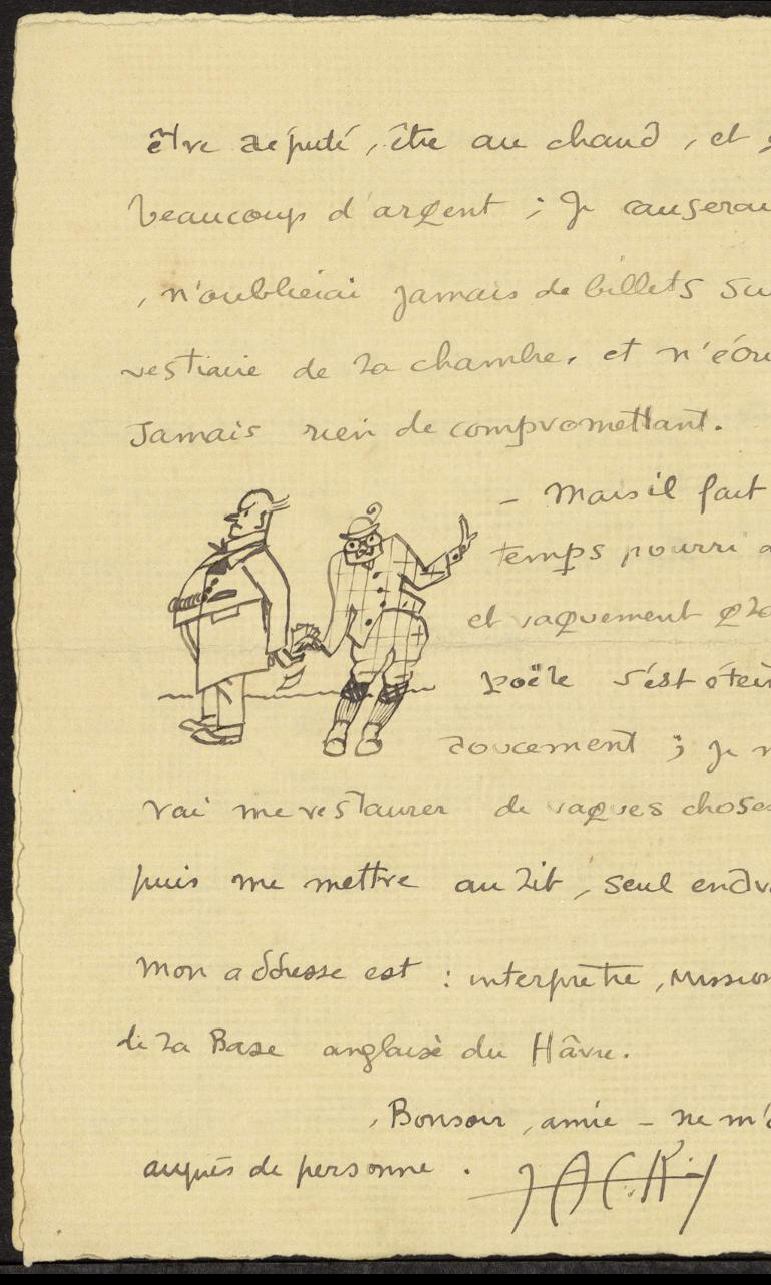 être député, être au chaud, et
beaucoup d'argent ; Je causerai
, n'oublierai jamais de billets su
vestiaire de la chambre, et n'écri
Jamais rien de compromettant.
– Mais il fait
temps pourri a
et vaguement
poële s'est étein
doucement ; Je
vai me restaurer de vagues choses
puis me mettre au lit, seul endr
mon addresse est : interprete, Mission
de la Base anglaise du Hâvre.
, Bonsoir, amie – ne m'
auprés de personne.
JACK